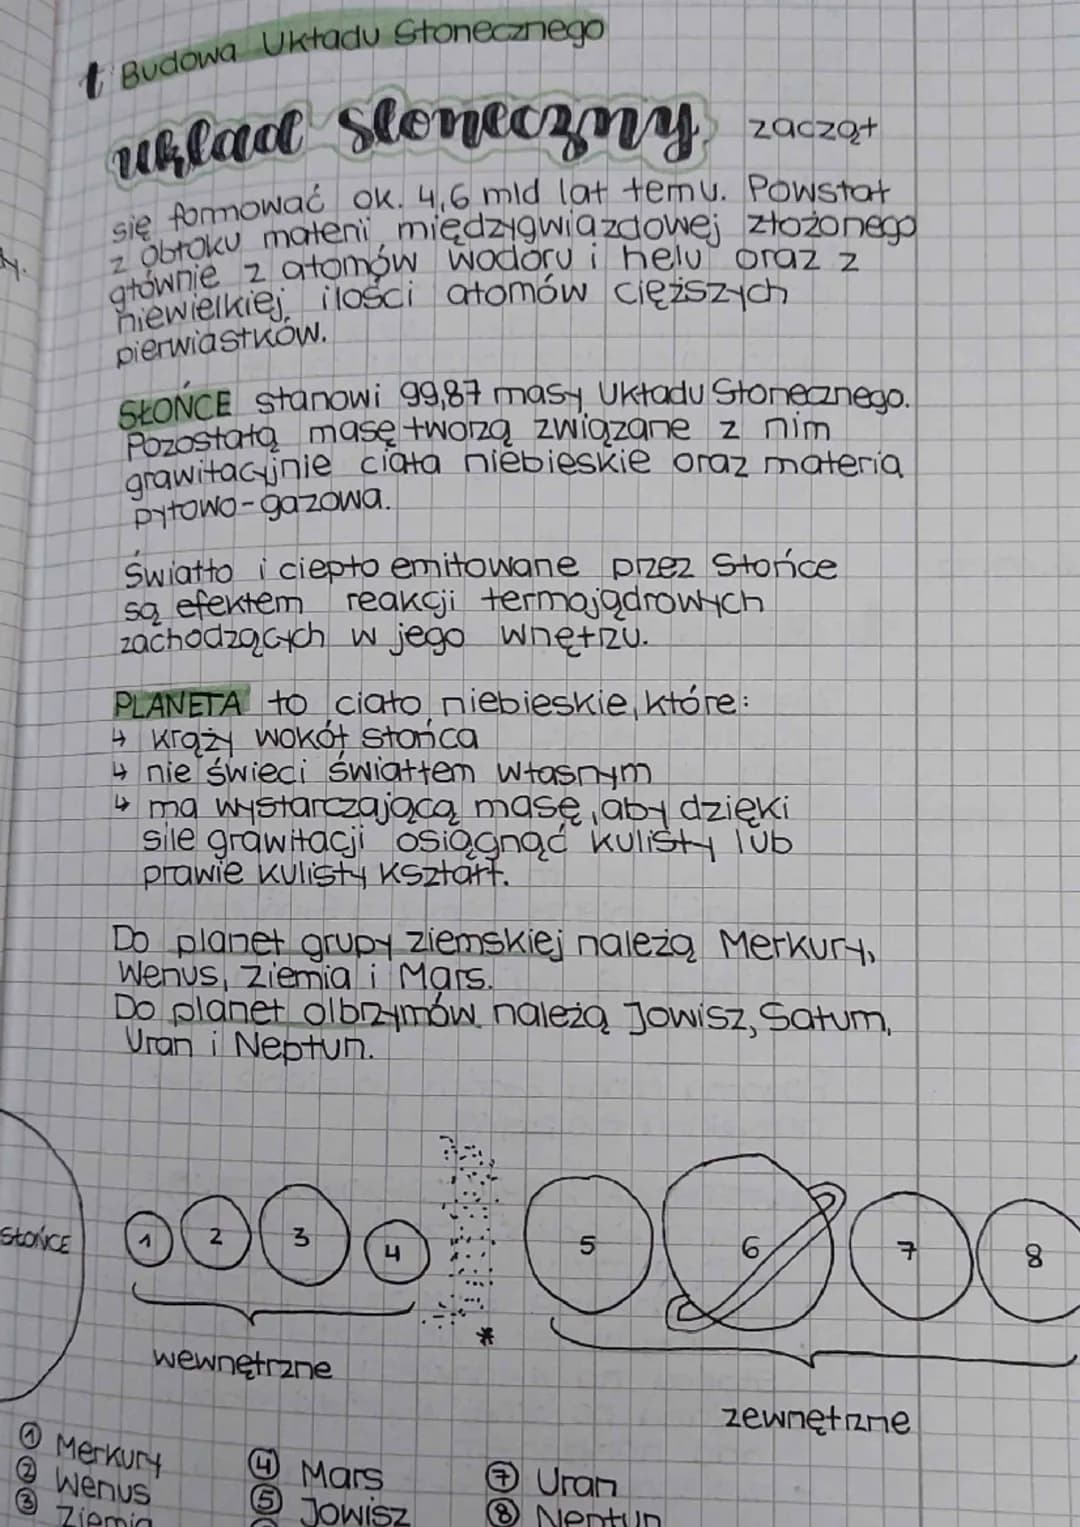 t: Budowa Układu Słonecznego
układ słoneczny zaczął
się formować ok. 4,6 mld lat temu. Powstał
z obłoku materii międzygwiazdowej złożonego
głównie z atomów wodoru i helu oraz z
niewielkiej ilości atomów cięższych
pierwiastków.
SŁOŃCE stanowi 99,87 masy Układu Słonecznego.
Pozostałą masę tworzą związane z nim
grawitacyjnie ciała niebieskie oraz materia
pyłowo-gazowa.
Światło i ciepło emitowane przez Słońce
są efektem reakcji termojądrowych
zachodzących w jego wnętrzu.
PLANETA to ciało niebieskie, które:
↳ krąży wokół słońca
↳ nie świeci światłem własnym
↳ ma wystarczającą masę, aby dzięki
sile grawitacji osiągnąć kulisty lub
prawie kulisty kształt.
Do planet grupy ziemskiej należą Merkury,
Wenus, Ziemia i Mars.
Do planet olbrzymów należą Jowisz, Saturn,
Uran i Neptun.
SŁOŃCE 1 2 3 4 5 6 7 8
*
wewnętrzne
zewnętrzne
① Merkury ④ Mars ⑦ Uran
② Wenus ⑤ Jowisz ⑧ Neptun
③ Ziemia